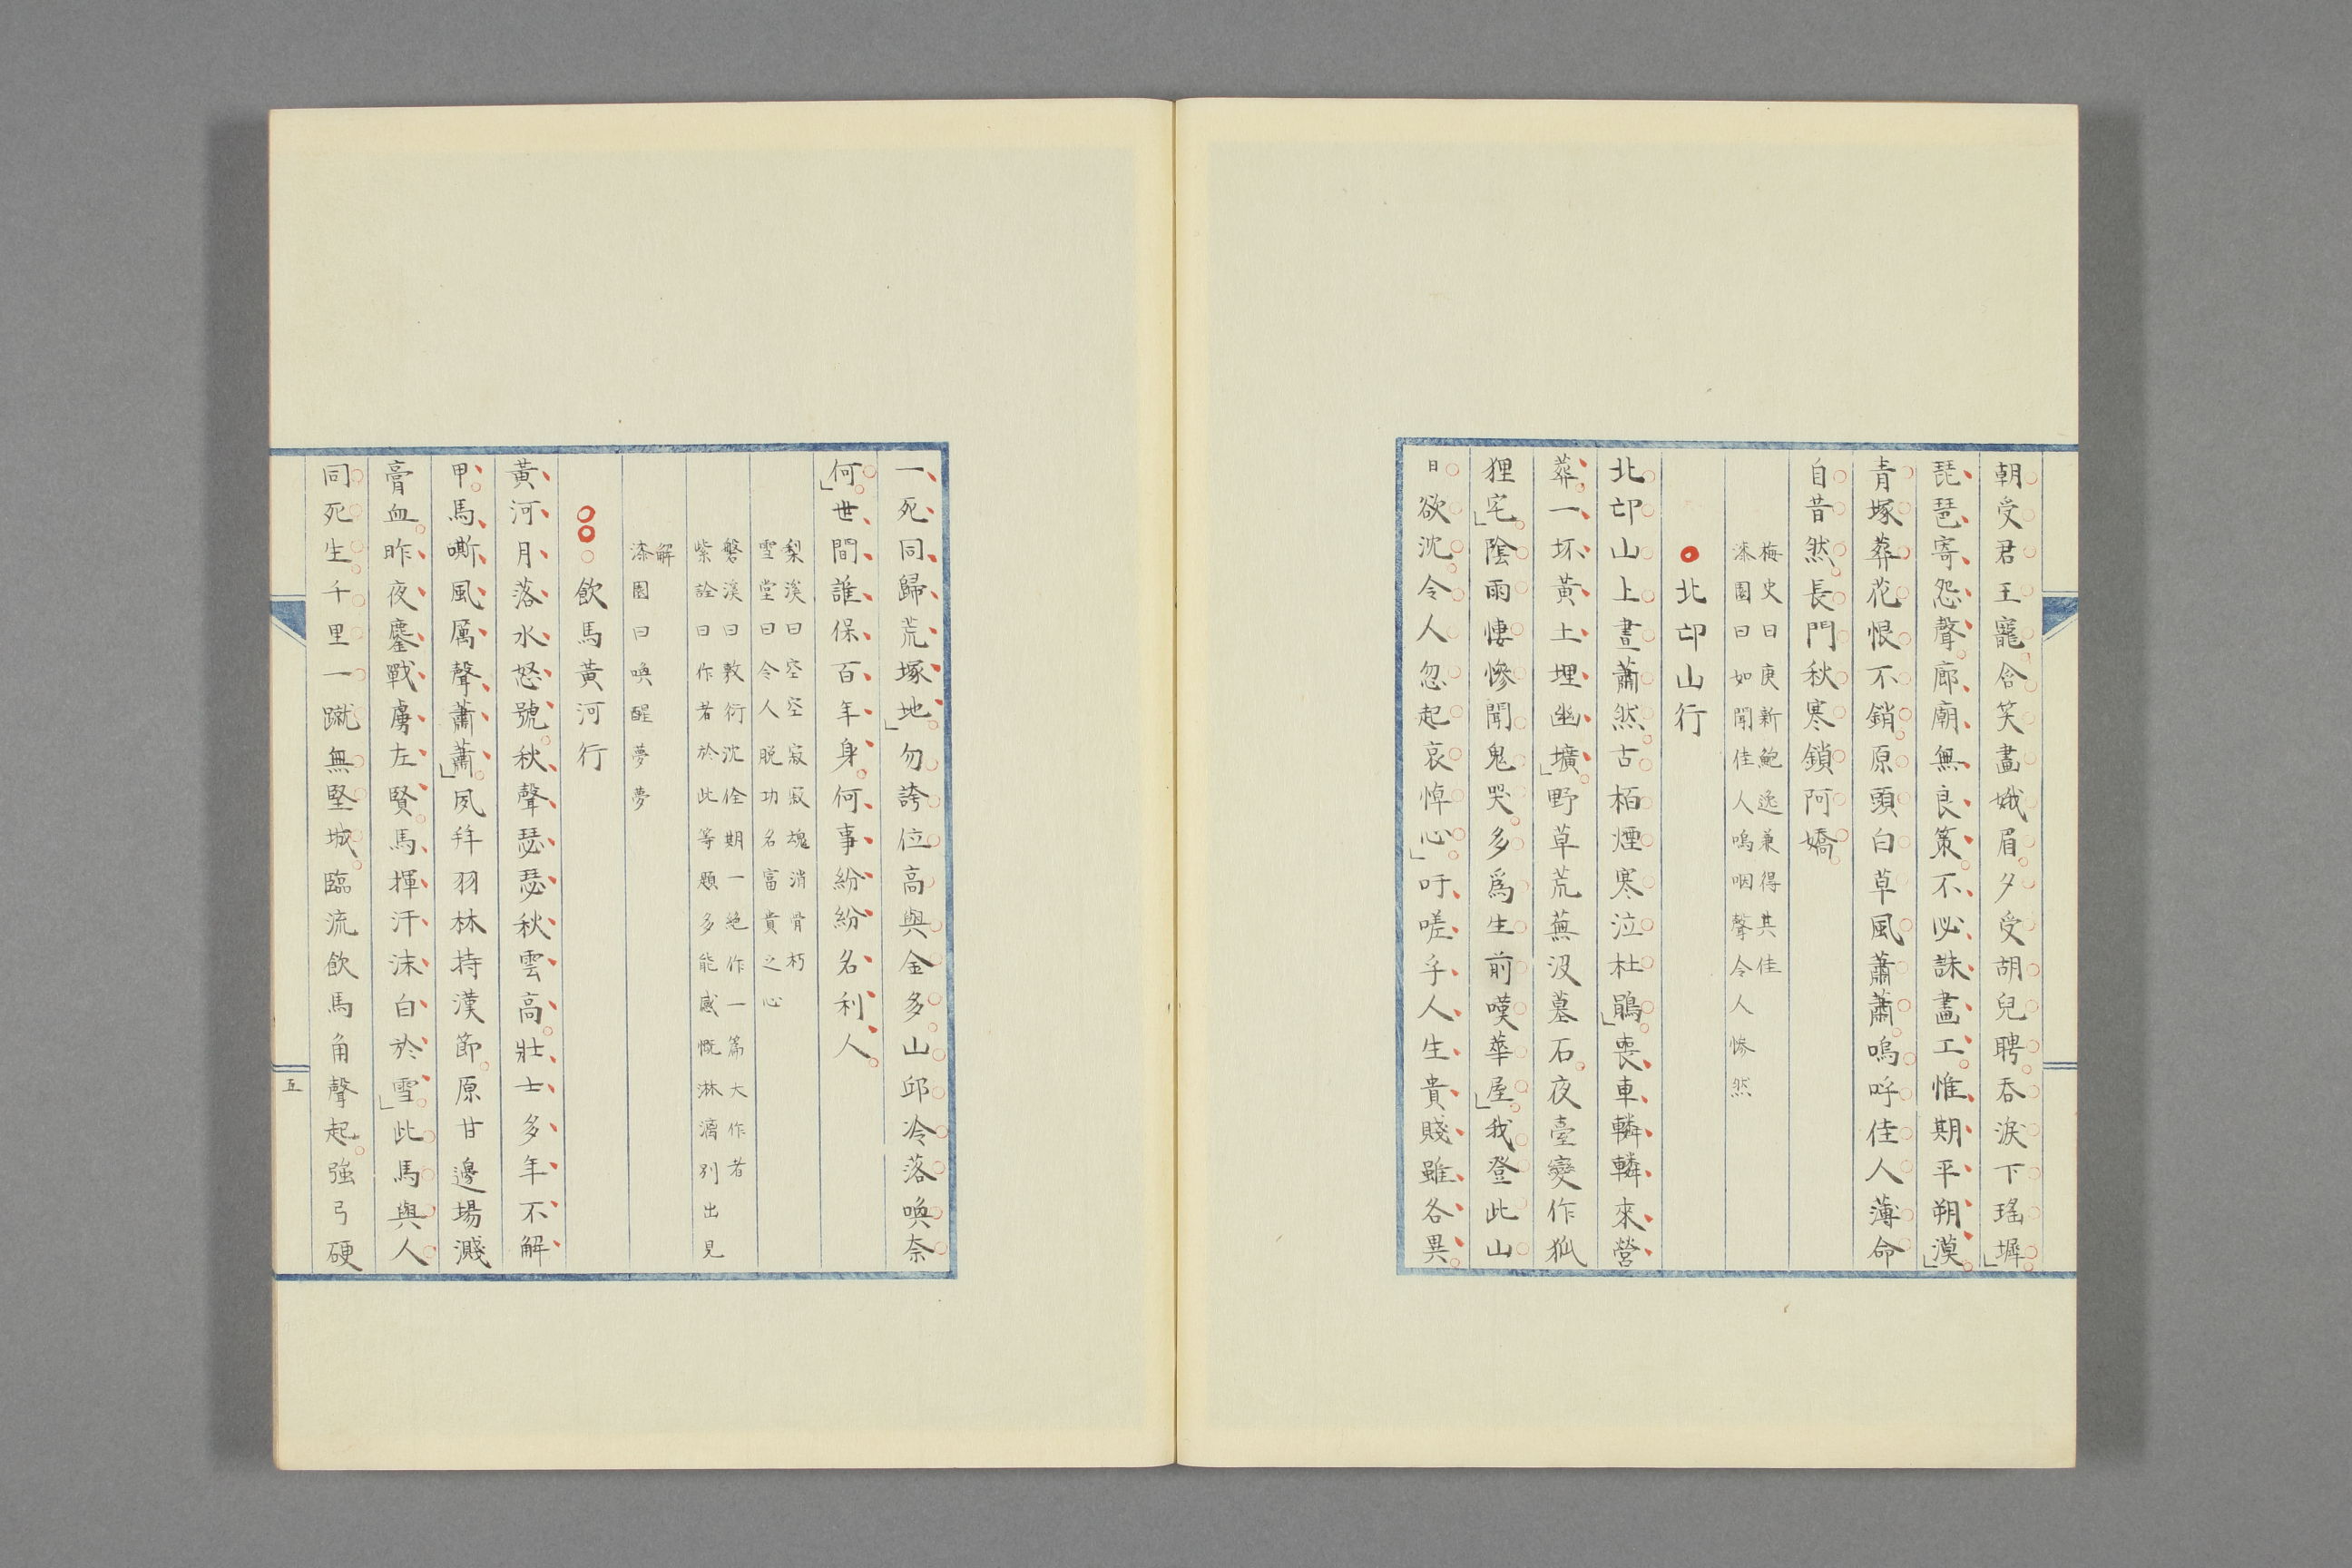 朝受君王寵含笑畫娥眉夕受胡兒聘吞淚下瑤墀
琵琶寄怨聲廊廟無良策不必誅畫工惟期平朔漠
青塚葬花恨不銷原頭白草風蕭蕭嗚呼佳人薄命
自昔然長門秋寒鎖阿嬌
梅史曰庚新鮑逸兼得其佳
漆園曰如聞佳人嗚咽聲令人慘然
北邙山行
北邙山上晝蕭然古栢煙寒泣杜鵑喪車轔轔來營
葬一坏黃土埋幽壙野草荒蕪沒墓石夜臺變作狐
狸宅陰雨悽慘聞鬼哭多爲生前嘆華屋我登此山
日欲沈令人忽起哀悼心吁嗟乎人生貴賤雖各異
一死同歸荒塚地勿誇位高與金多山邱冷落喚奈
何世間誰保百年身何事紛紛名利人
梨溪曰空空寂寂魂消骨朽
雪堂曰令人脫功名富貴之心
磐溪曰敷衍沈佺期一絶作一篇大作者
紫詮曰作者於此等題多能感慨淋漓別出見
解
漆園曰喚醒夢夢
飲馬黃河行
黃河月落水怒號秋聲瑟瑟秋雲高壯士多年不解
甲馬嘶風厲聲蕭蕭夙拜羽林持漢節原甘邊場濺
膏血昨夜鏖戰虜左賢馬揮汗沫白於雪此馬與人
同死生千里一蹴無堅城臨流飲馬角聲起強弓硬
五